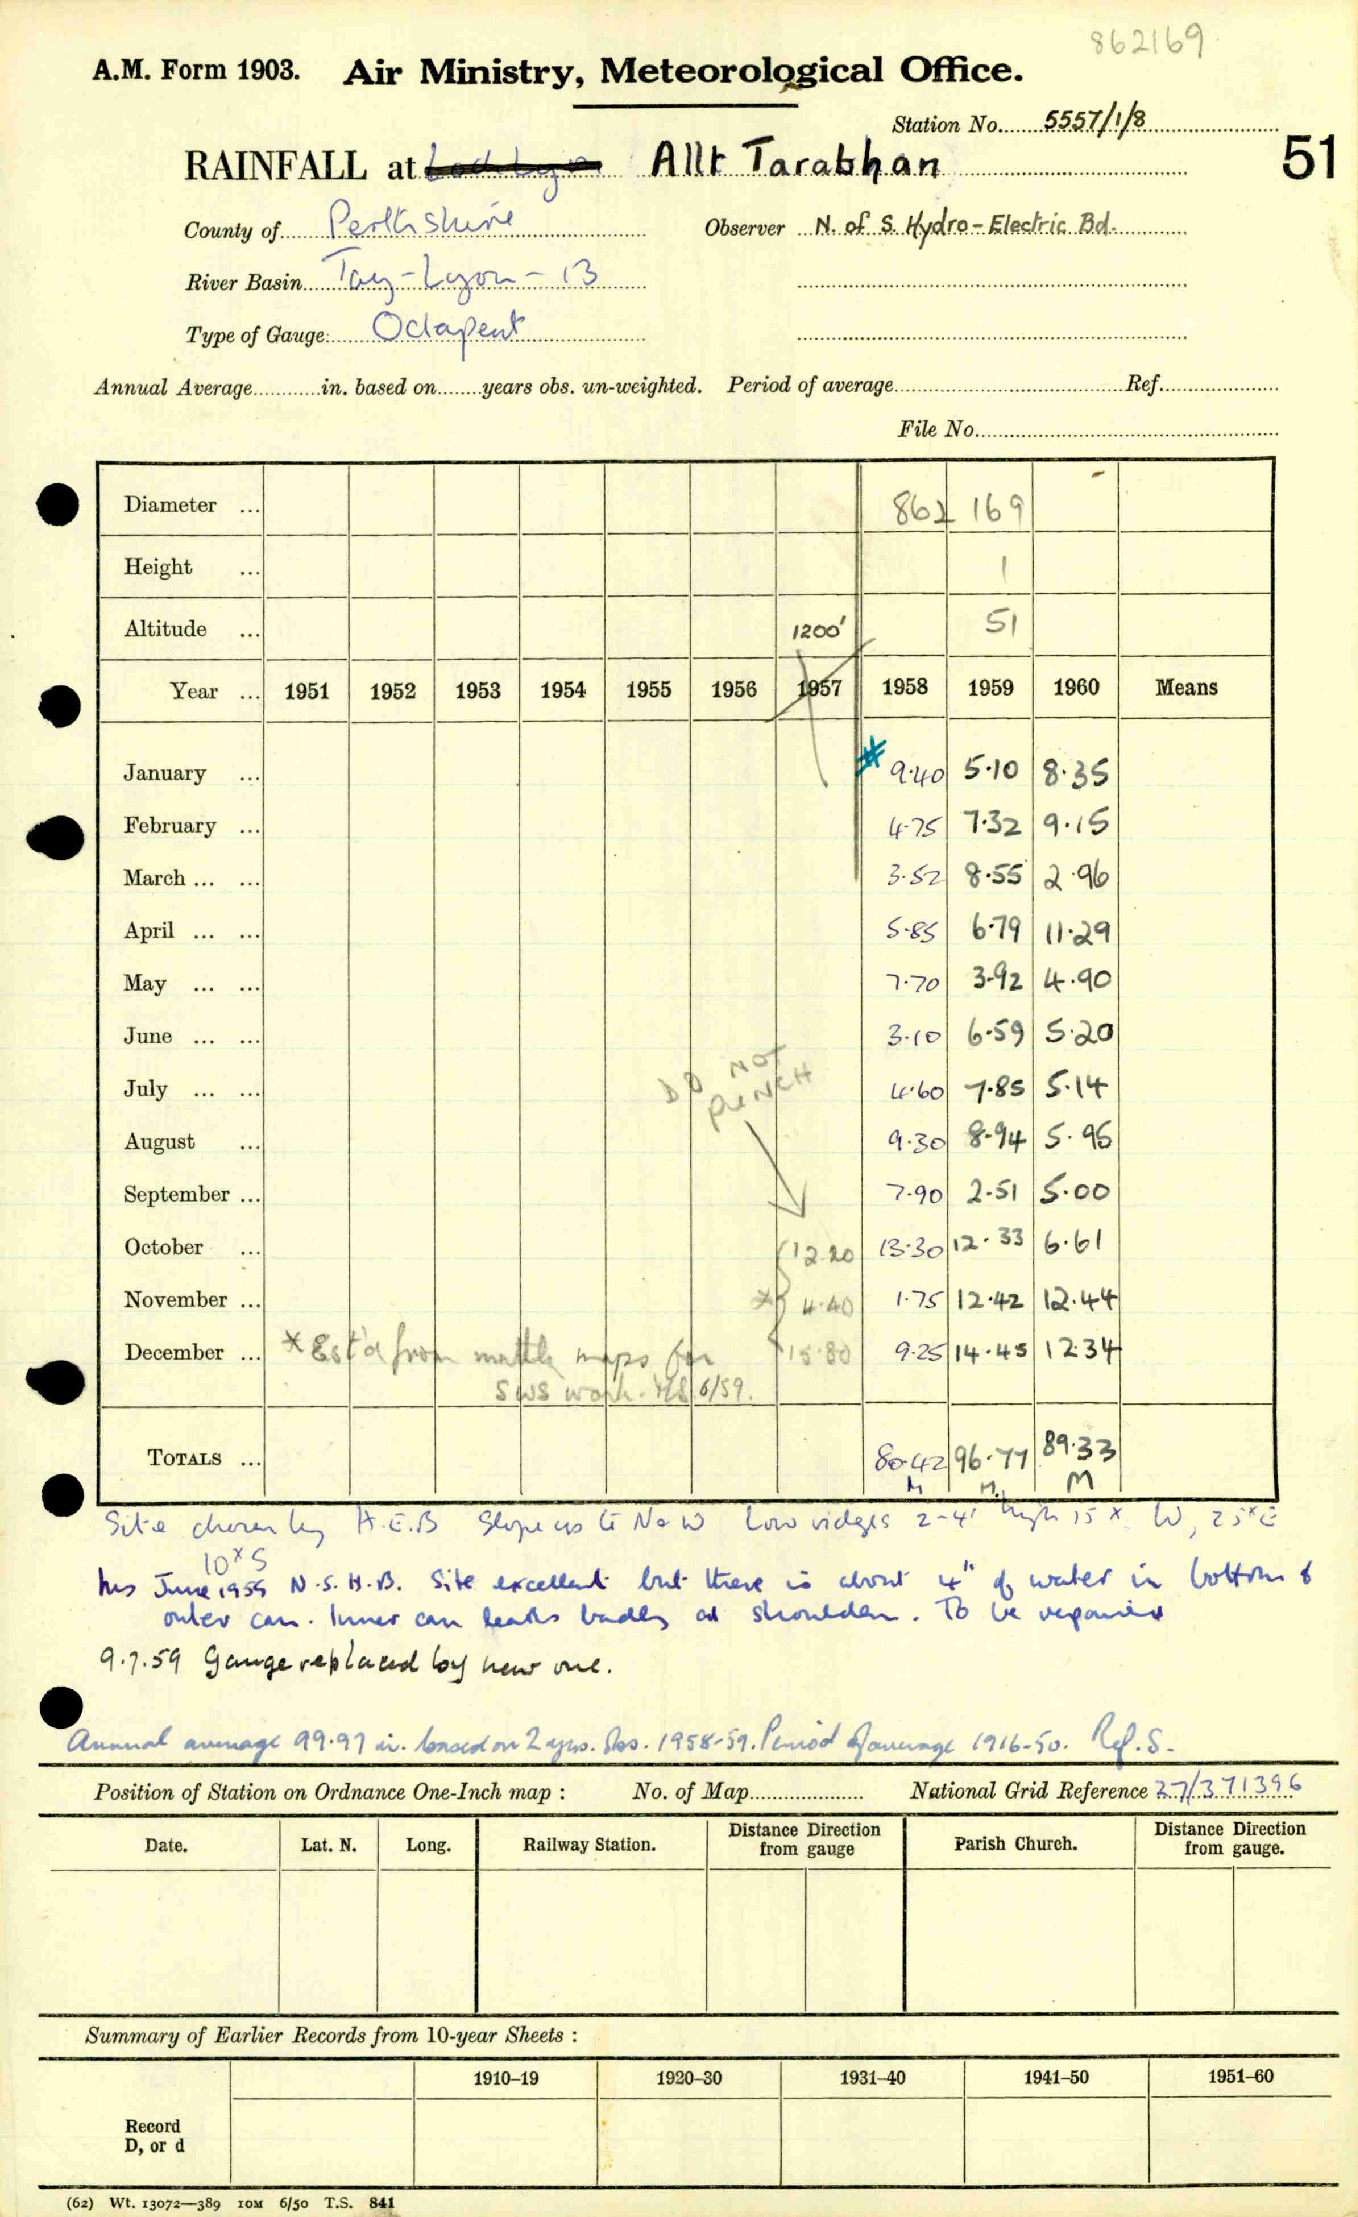 862169
A.M. Form 1903. Air Ministry, Meteorological Office.
Station No. 5557/1/8
51
RAINFALL at Loch Lyon Allt Tarabhan
County of Perthshire Observer N. of S. Hydro-Electric Bd.
River Basin Tay-Lyon-13
Type of Gauge: Octapent
Annual Average in. based on years obs. un-weighted. Period of average Ref.
File No.
Diameter ... 862 169
Height ... 1
Altitude ... 1200' 51
Year ... 1951 1952 1953 1954 1955 1956 1957 1958 1959 1960 Means
January ... * 9.40 5.10 8.35
February ... 4.75 7.32 9.15
March ... ... 3.52 8.55 2.96
April ... ... 5.85 6.79 11.29
May ... ... 7.70 3.92 4.90
June ... ... 3.10 6.59 5.20
DO NOT
PUNCH
July ... ... 4.60 7.85 5.14
August ... 9.30 8.94 5.95
September ... 7.90 2.51 5.00
October ... 12.20 13.30 12.33 6.61
November ... * 4.40 1.75 12.42 12.44
December ... 15.80 9.25 14.45 12.34
* Est'd from mthly maps for
SWS work. 6/59.
TOTALS ... 80.42 96.77 89.33
M M. M
Site chosen by H.E.B Slope up to N & W Low ridges 2-4' high 15x W, 25x E
10x S
Ins June 1959 N.S.H.B. Site excellent but there is about 4" of water in bottom of
outer can. Inner can leaks badly at shoulder. To be repaired
9.7.59 Gauge replaced by new one.
Annual average 99.97 in. based on 2 yrs. obs. 1958-59. Period of average 1916-50. Ref. S.
Position of Station on Ordnance One-Inch map : No. of Map National Grid Reference 27/371396
Date. Lat. N. Long. Railway Station. Distance Direction from gauge Parish Church. Distance Direction from gauge.
Summary of Earlier Records from 10-year Sheets :
1910-19 1920-30 1931-40 1941-50 1951-60
Record
D, or d
(62) Wt. 13072—389 10M 6/50 T.S. 841